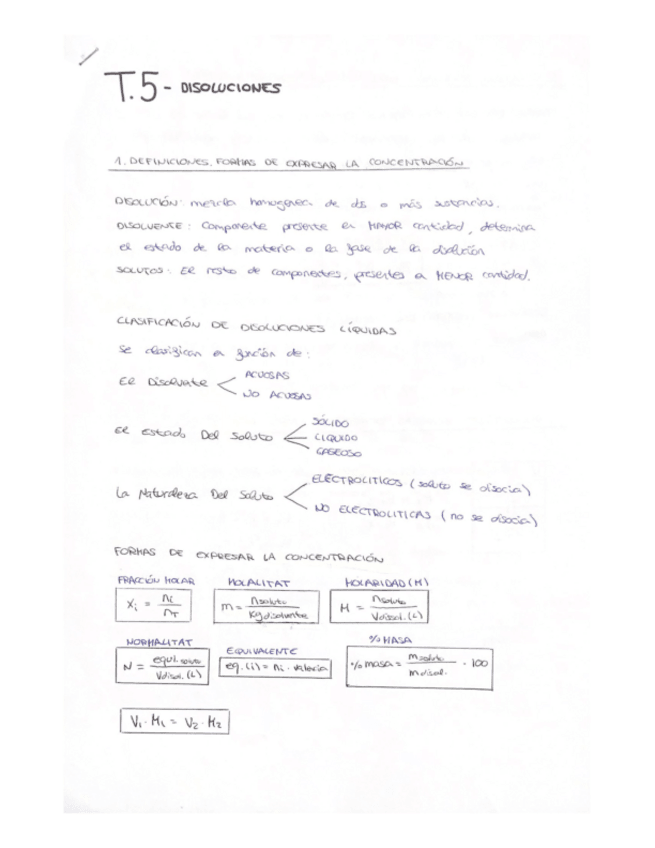 T.5 - DISOLUCIONES
1. DEFINICIONES, FORMAS DE EXPRESAR LA CONCENTRACIÓN
DISOLUCIÓN: mezcla homogenea de ds o más sustancias.
DISOLVENTE: Componente presente en MAYOR cantidad, determina
el estado de la materia o la fase de la disolución
SOLUTOS: El resto de componentes, presentes a MENOR cantidad.
CLASIFICACIÓN DE DISOLUCIONES LÍQUIDAS
Se clasifican en función de:
El Disolvente
ACUOSAS
NO ACUOSAS
El Estado Del Soluto
SÓLIDO
LIQUIDO
GASEOSO
La Naturaleza Del Soluto
ELECTROLITICOS (soluto se disocia)
NO ELECTROLITICAS (no se disocia)
FORMAS DE EXPRESAR LA CONCENTRACIÓN
FRACCIÓN MOLAR MOLALITAT MOLARIDAD (M)
Xi = ni / nT
m = nsoluto / Kg disolvente
M = nsoluto / Vdisol. (L)
NORMALITAT EQUIVALENTE % MASA
N = equi. soluto / Vdisol. (L)
eq. (i) = ni · valencia
% masa = m soluto / m disol. · 100
V1 · M1 = V2 · M2